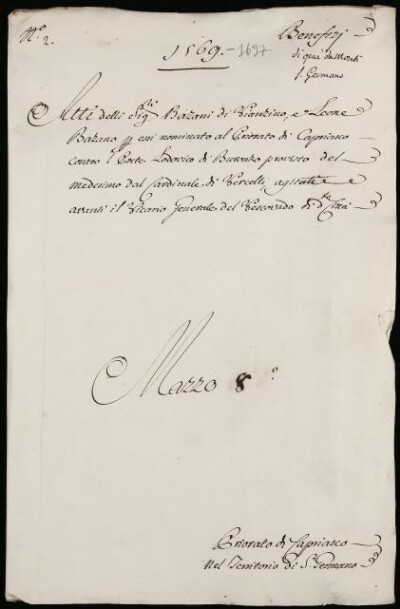 N.º 2.
1569.-1697
Benefizj
di quà da Monti
S. Germano
Atti delli Sig.ri Bazani di Vianzino, e Leone
Bazano p essi nominato al Priorato di Capriasco
contro l' Conte Lodovico di Buronzo provisto del
medesimo dal Cardinale di Vercelli, agitati
avanti il Vicario Generale del Vescovado di d.ta Città
Mazzo 8º
Priorato di Capriasco
Nel Territorio di S. Germano